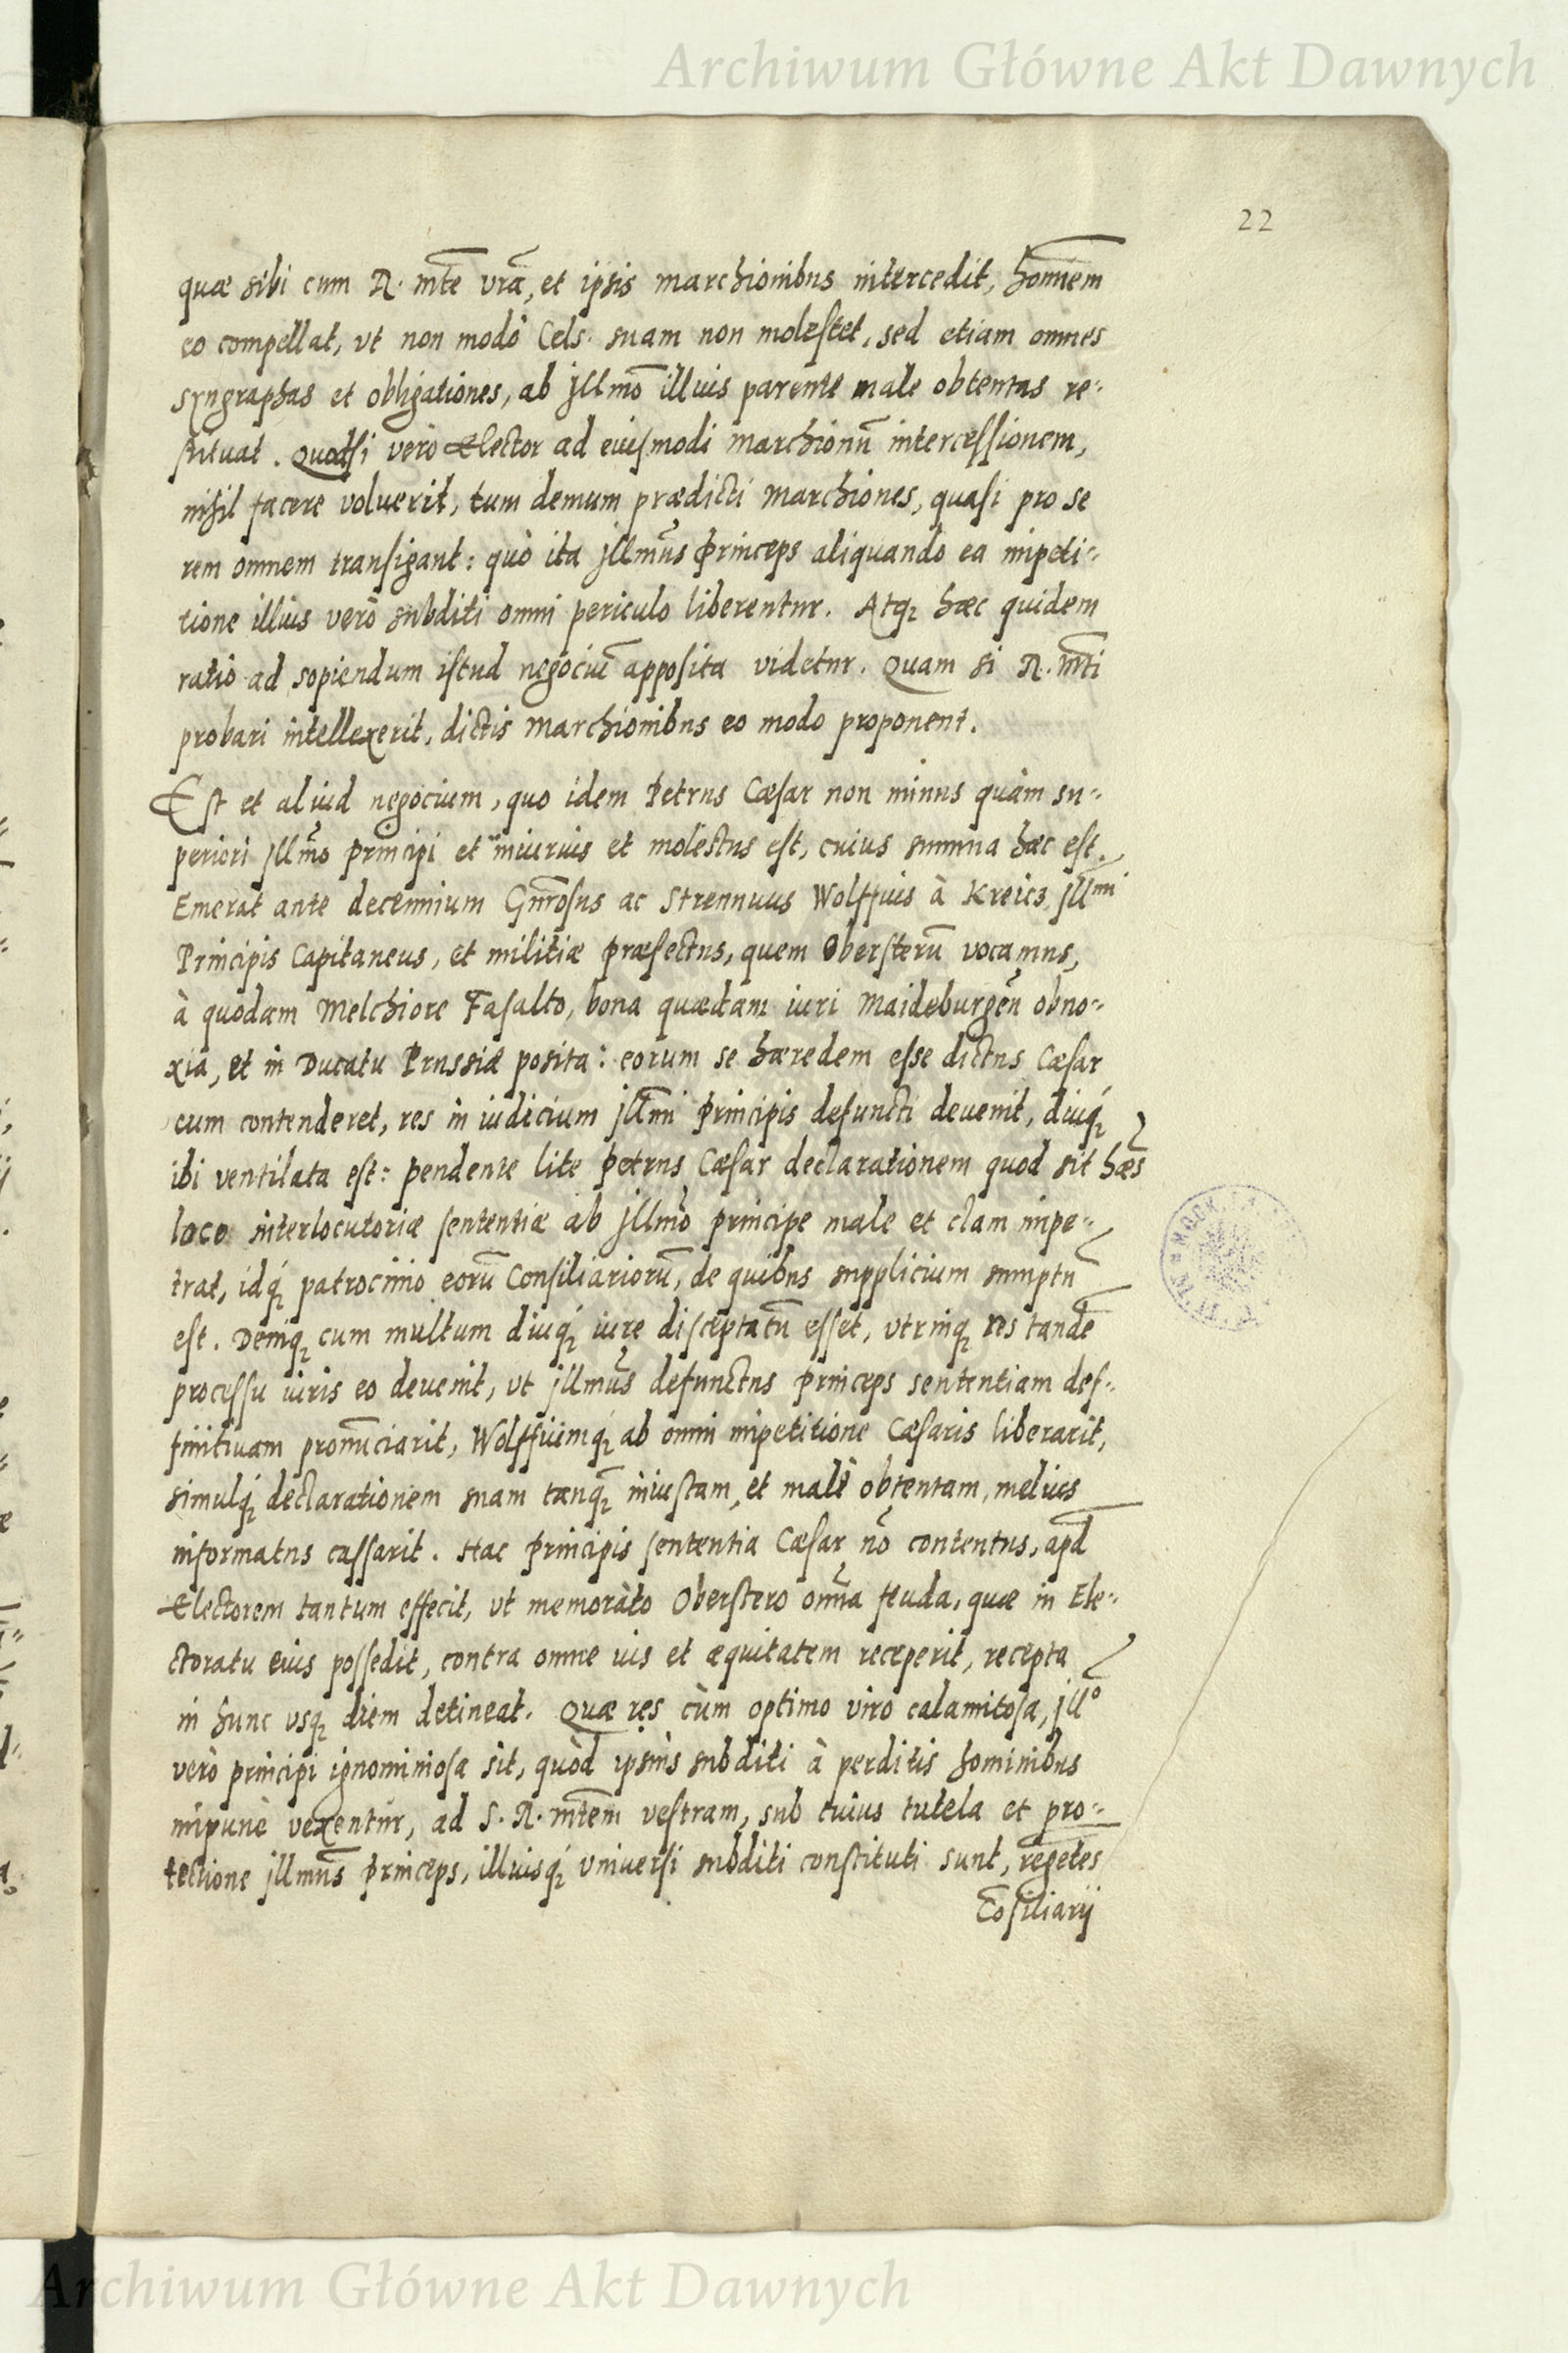 Archiwum Główne Akt Dawnych
22
quæ sibi cum R. mte vra, et ipsis marchionibus intercedit, hominem
eo compellat, vt non modo Cels. suam non molestet, sed etiam omnes
syngraphas et obligationes, ab Jllmo illius parente male obtentas re=
stituat. Quodsi vero Elector ad eiusmodi Marchionũ intercessionem,
nihil facere voluerit, tum demum prædicti Marchiones, quasi pro se
rem omnem transigant: quò ita Jllmus Princeps aliquando ea impeti=
tione illius verò subditi omni periculo liberentur. Atq₃ hæc quidem
ratio ad sopiendum istud negociũ apposita videtur. Quam si R. Mti
probari intellexerit, dictis Marchionibus eo modo proponent.
Est et aliud negocium, quo idem Petrus Cæsar non minus quàm su=
periori Jllmo Principi et iniurius et molestus est, cuius summa hæc est.
Emerat ante decennium Gnrosus ac Strennuus Wolffius à Kreicz Jllmi
Principis Capitaneus, et militiæ præfectus, quem Obersterũ vocamus,
à quodam Melchiore Fasalto, bona quædam iuri Maideburgeñ obno=
xia, et in Ducatu Prussiæ posita: eorum se hæredem esse dictus Cæsar
cum contenderet, res in iudicium Jllmi Principis defuncti deuenit, diuq₃
ibi ventilata est: pendente lite Petrus Cæsar declarationem quod sit hæs
loco interlocutoriæ sententiæ ab Jllmo principe male et clam impe=
trat, idq₃ patrocinio eorũ Consiliariorũ, de quibus supplicium sumptũ
est. Deniq₃ cum multum diuq₃ iure disceptatũ esset, vtrinq₃ res tandẽ
processu iuris eo deuenit, vt Jllmus defunctus Princeps sententiam def=
finitiuam pronũciarit, Wolffiumq₃ ab omni impetitione Cæsaris liberarit,
simulq₃ declarationem suam tanq₃ iniustam, et malè obtentam, melius
informatus cassarit. Hac Principis sententia Cæsar nõ contentus, apd
Electorem tantum effecit, vt memorato Oberstero omña feuda, quæ in Ele=
ctoratu eius possedit, contra omne ius et æquitatem receperit, recepta
in hunc vsq₃ diem detineat. Quæ res cùm optimo viro calamitosa, Jllo
verò principi ignominiosa sit, quòd ipsius subditi à perditis hominibus
impunè vexentur, ad S. R. Mtem vestram, sub cuius tutela et pro=
tectione Jllmus Princeps, illiusq₃ vniuersi subditi constituti sunt, regẽtes
Cõsiliarij
Archiwum Główne Akt Dawnych